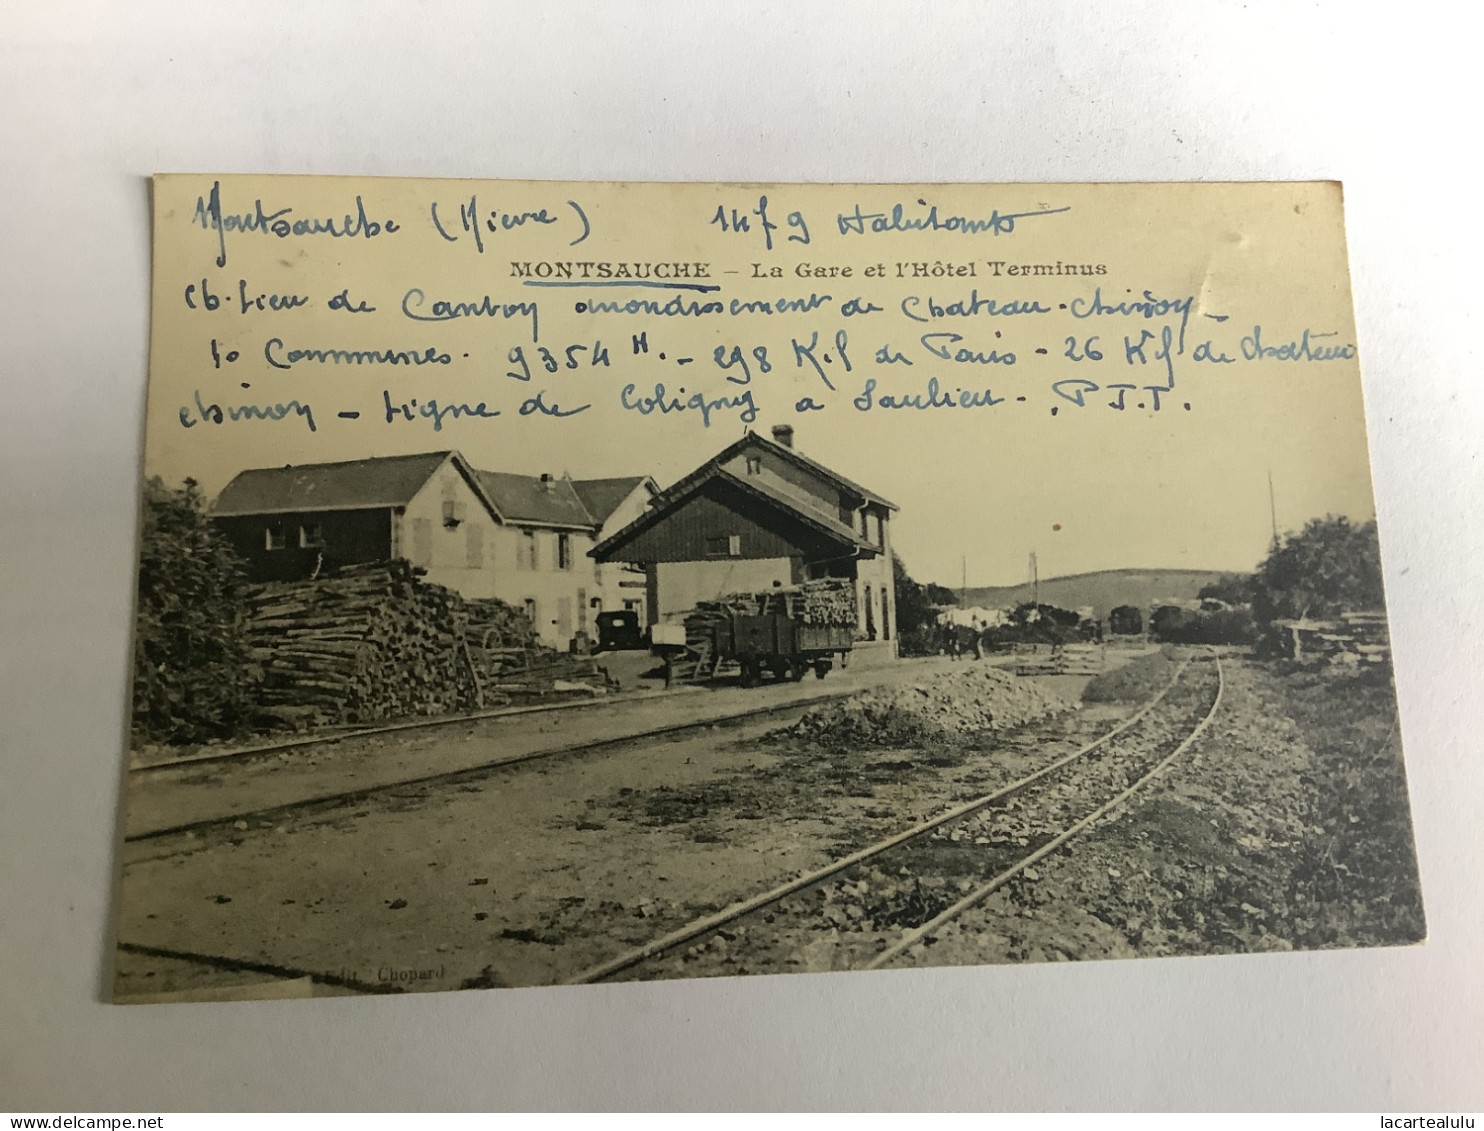 Montsauche (Nievre) 1479 Habitants
MONTSAUCHE – La Gare et l'Hôtel Terminus
Ch. Lieu de Canton arrondissement de Chateau-chinon -
10 Communes. 9354 H. - 298 K.l de Paris - 26 Kl de Chateau
chinon - Ligne de Coligny a Saulieu - . P.T.T.
Edit. Chopard
lacartealulu